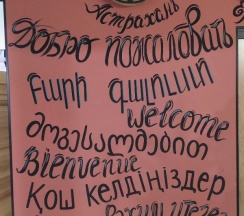 Астрахань
Добро пожаловать
Բարի գալուստ
Welcome
მოგესალმებით
Bienvenue
Қош келдіңіздер